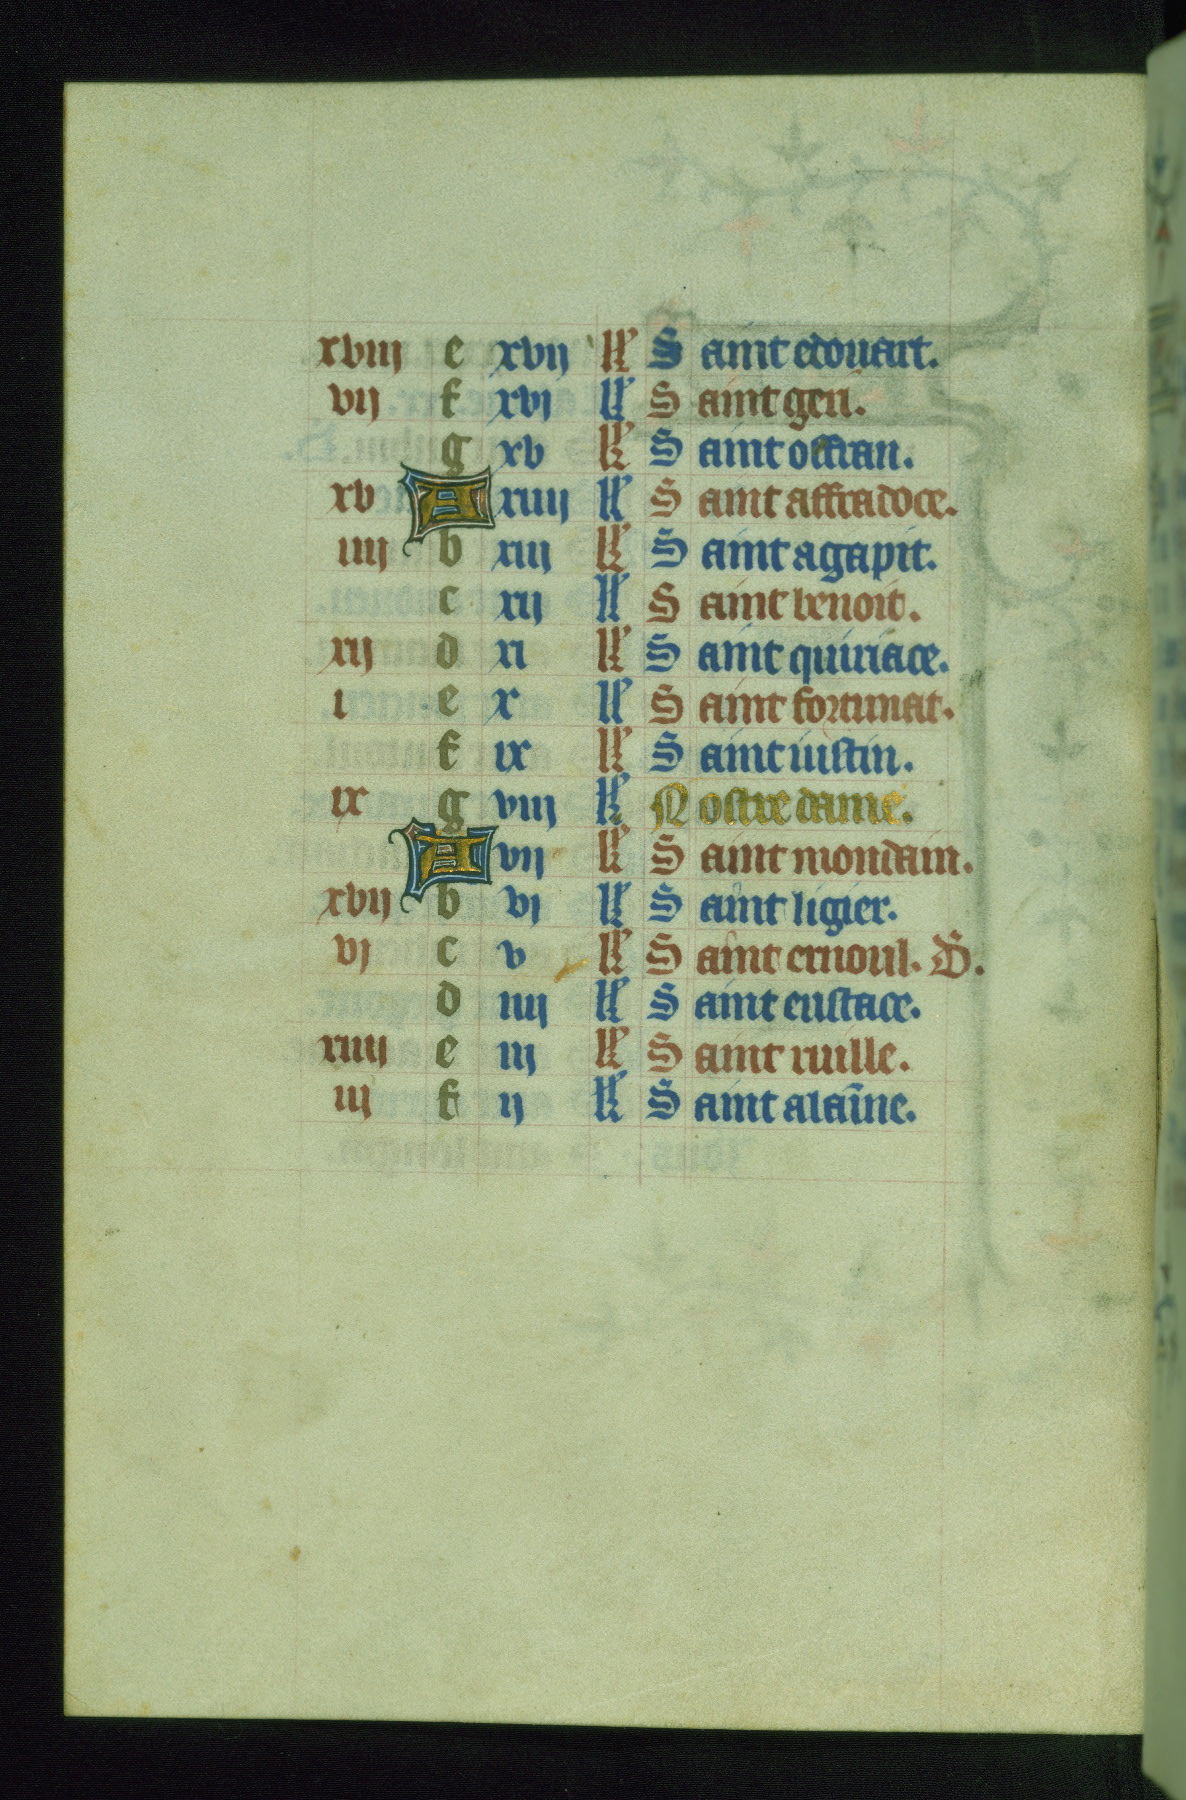 xviii e xvii kl Saint edouart.
vij f xvj kl Saint gen.
g xv kl Saint offran.
xv A xiiij kl Saint affradoce.
iiij b xiij kl Saint agapit.
c xij kl Saint benoit.
xij d xi kl Saint quiriace.
i e x kl Saint fortunat.
f ix kl Saint iustin.
ix g viij kl Nostre dame.
A vij kl Saint mondain.
xvij b vj kl Saint ligier.
vj c v kl Saint ernoul. D.
d iiij kl Saint eustace.
xiiij e iij kl Saint ruille.
iij f ij kl Saint alaine.